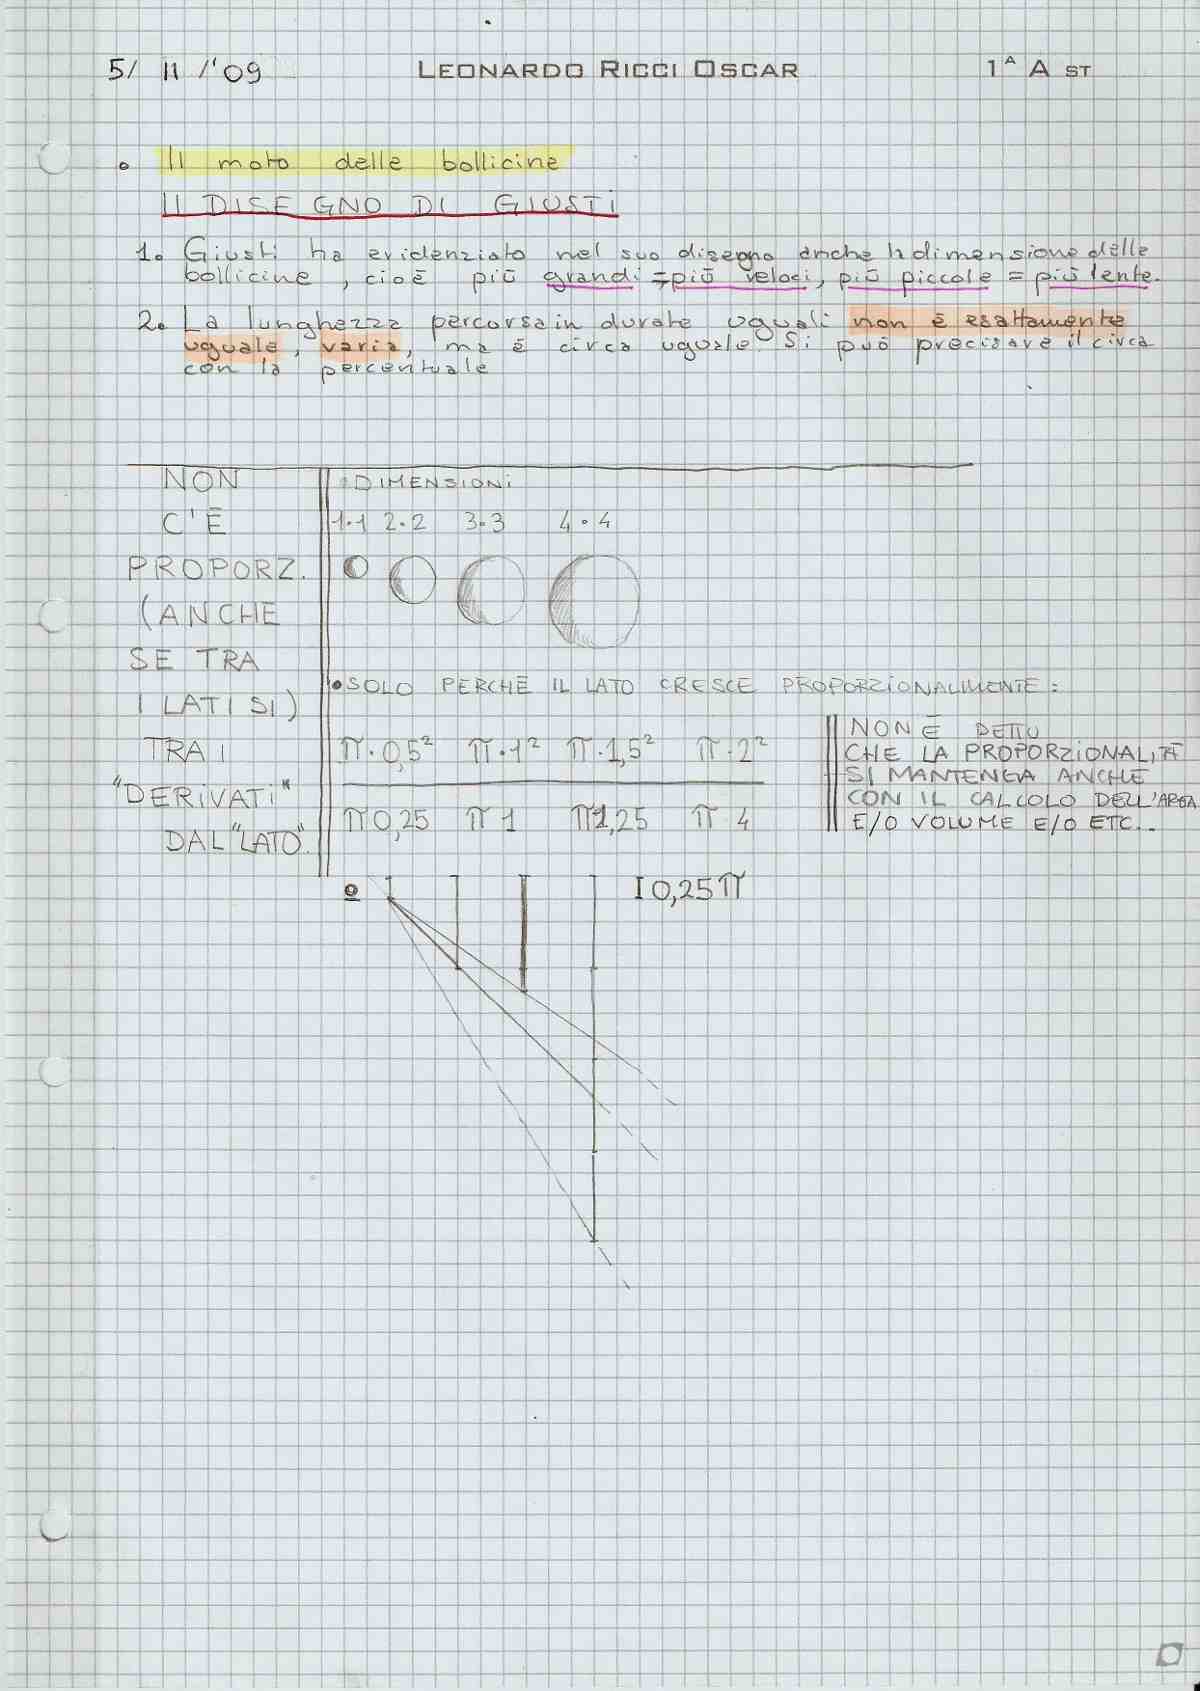 5/ 11 /'09
LEONARDO RICCI OSCAR
1ᴬ A ST
• Il moto delle bollicine
Il DISEGNO DI GIUSTI
1. Giusti ha evidenziato nel suo disegno anche la dimensione delle
bollicine, cioè più grandi = più veloci, più piccole = più lente.
2. La lunghezza percorsa in durate uguali non è esattamente
uguale, varia, ma è circa uguale. Si può precisare il circa
con la percentuale
NON
C'È
PROPORZ.
(ANCHE
SE TRA
I LATI SI)
TRA I
"DERIVATI"
DAL "LATO".
DIMENSIONI
1·1 2·2 3·3 4·4
• SOLO PERCHÈ IL LATO CRESCE PROPORZIONALMENTE:
π·0,5² π·1² π·1,5² π·2²
π0,25 π1 π1,25 π4
NON È DETTO
CHE LA PROPORZIONALITÀ
SI MANTENGA ANCHE
CON IL CALCOLO DELL'AREA
E/O VOLUME E/O ETC...
I 0,25π